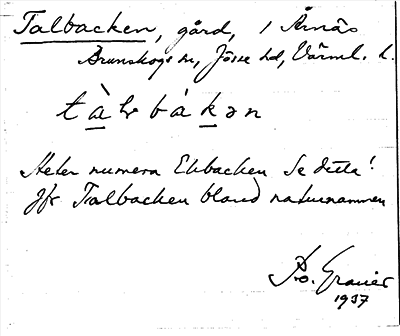 Talbacken, gård, i Årnäs
Brunskogs sn, Jösse hd, Värml. l.
tàlbákən
Heter numera Ekbacken Se detta!
Jfr Talbacken bland naturnamnen
1937